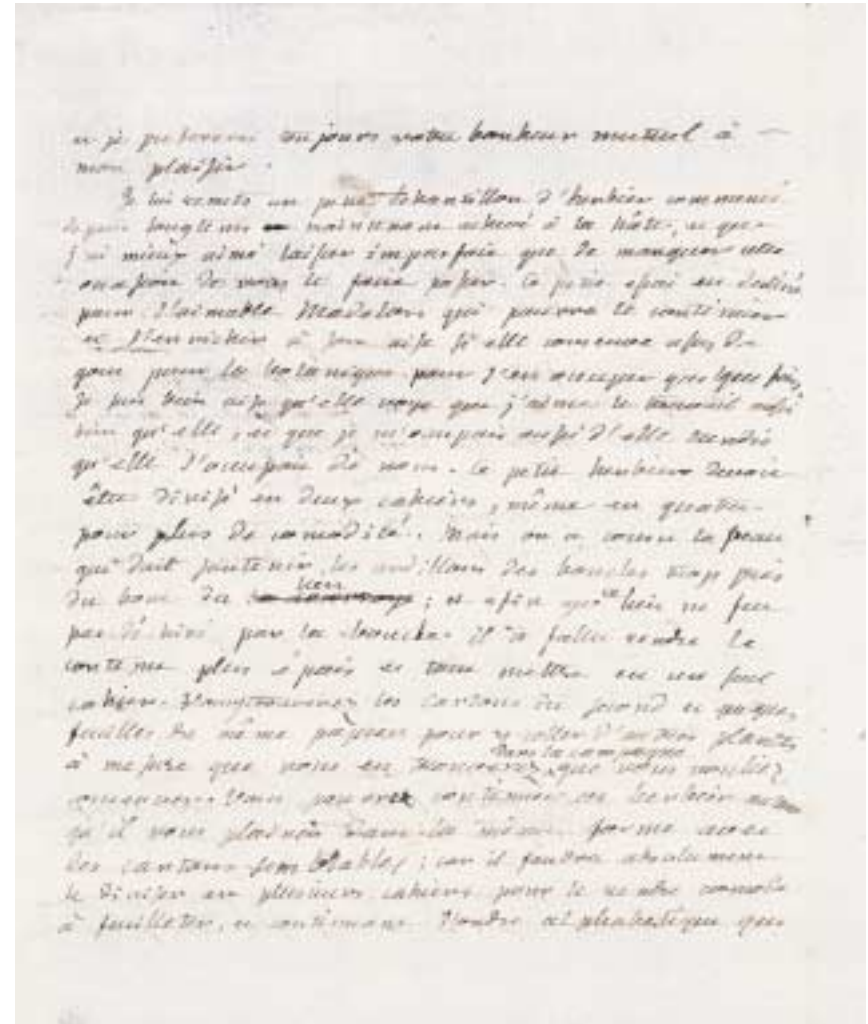 et je prefererai toujours votre bonheur mutuel à
mon plaisir.
Je lui remets un petit échantillon d'herbier commencé
depuis longtems maintenant achevé à la hâte, et que
j'ai mieux aimé laisser imparfait que de manquer cette
occasion de vous le faire passer. Ce petit essai est destiné
pour l'aimable Madelon qui pourra le continuer
et l'enrichir à son aise si elle conserve assez de
gout pour la botanique pour s'en occuper quelque fois,
Je suis bien aise qu'elle voye que j'aime le travail aussi
bien qu'elle, et que je m'occupois aussi d'elle tandis
qu'elle s'occupoit de nous. Ce petit herbier devoit
être divisé en deux cahiers, même en quatre
pour plus de comodité. Mais on a cousu la peau
qui doit soutenir les ardillons des boucles trop près
du bout du lien ; et afin que le lien ne fut
pas déchiré par la boucle il a fallu rendre le
contenu plus épais et tout mettre en un seul
cahier. Vous trouverez les cartons du second et quelques
feuilles de même papier pour y coller d'autres plantes
à mesure que vous en trouverez dans la campagne que vous voudrez
conserver. Vous pourrez continuer cet herbier autant
qu'il vous plairoit dans la même forme avec
des cartons semblables ; car il faudra absolument
le diviser en plusieurs cahiers pour le rendre comode
à feuilleter, en continuant l'ordre alphabetique que